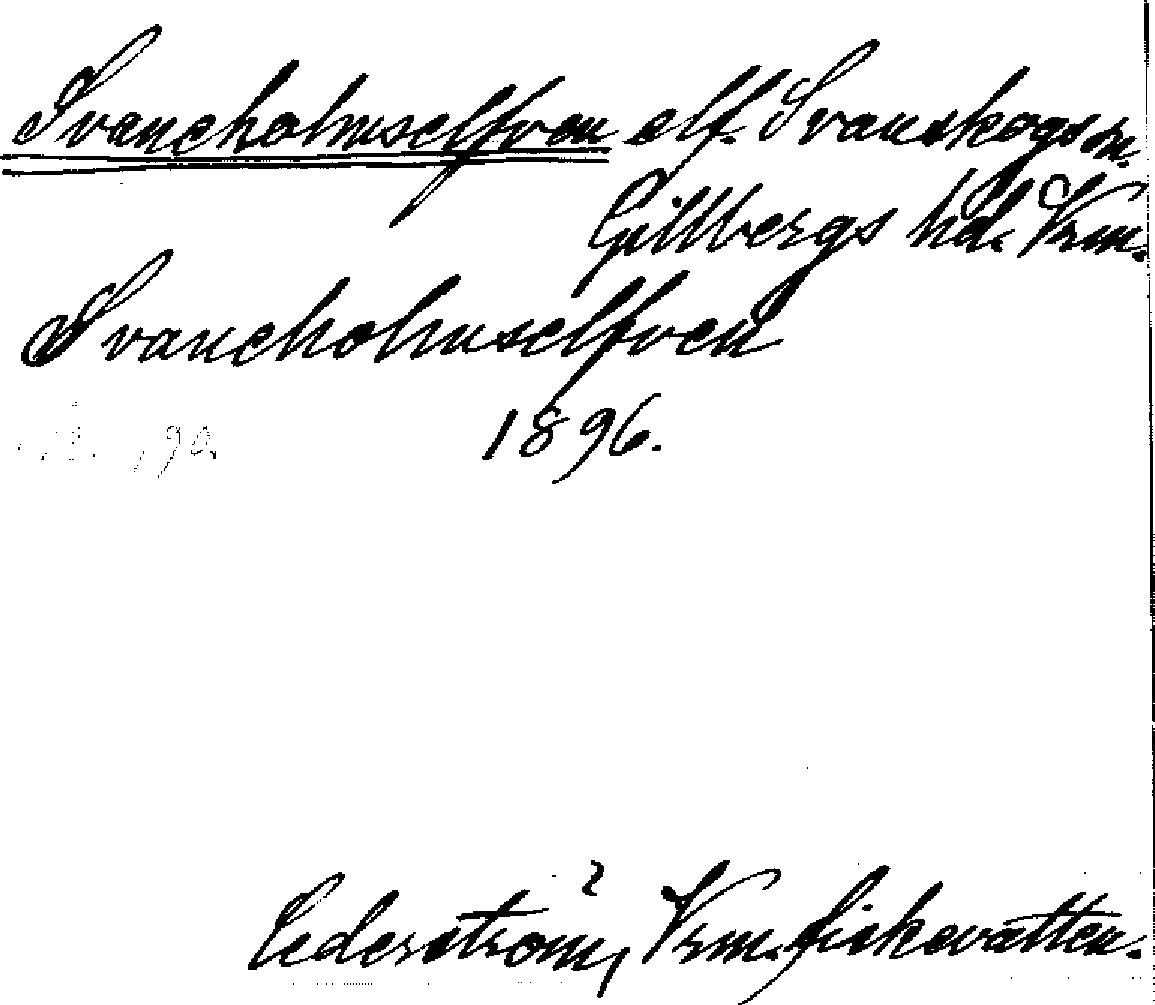 Svaneholmselfven elf. Svanskogs sn.
Gillbergs hd. Vrm.
Svaneholmselfven
1896.
Cederström, Vrm. fiskevatten.